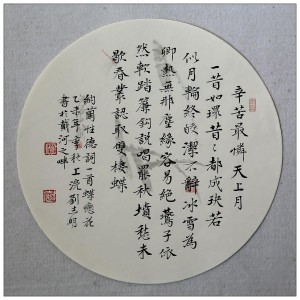 辛苦最憐天上月
一昔如環昔々都成玦若
似月輪終皎潔不辭冰雪為
卿熱無那塵緣容易絕鷰子依
然軟踏簾鉤說唱罷秋墳愁未
歇春叢認取雙棲蝶
納蘭性德詞一首蝶戀花
乙未年季秋上浣劉志明
書於戴河之畔